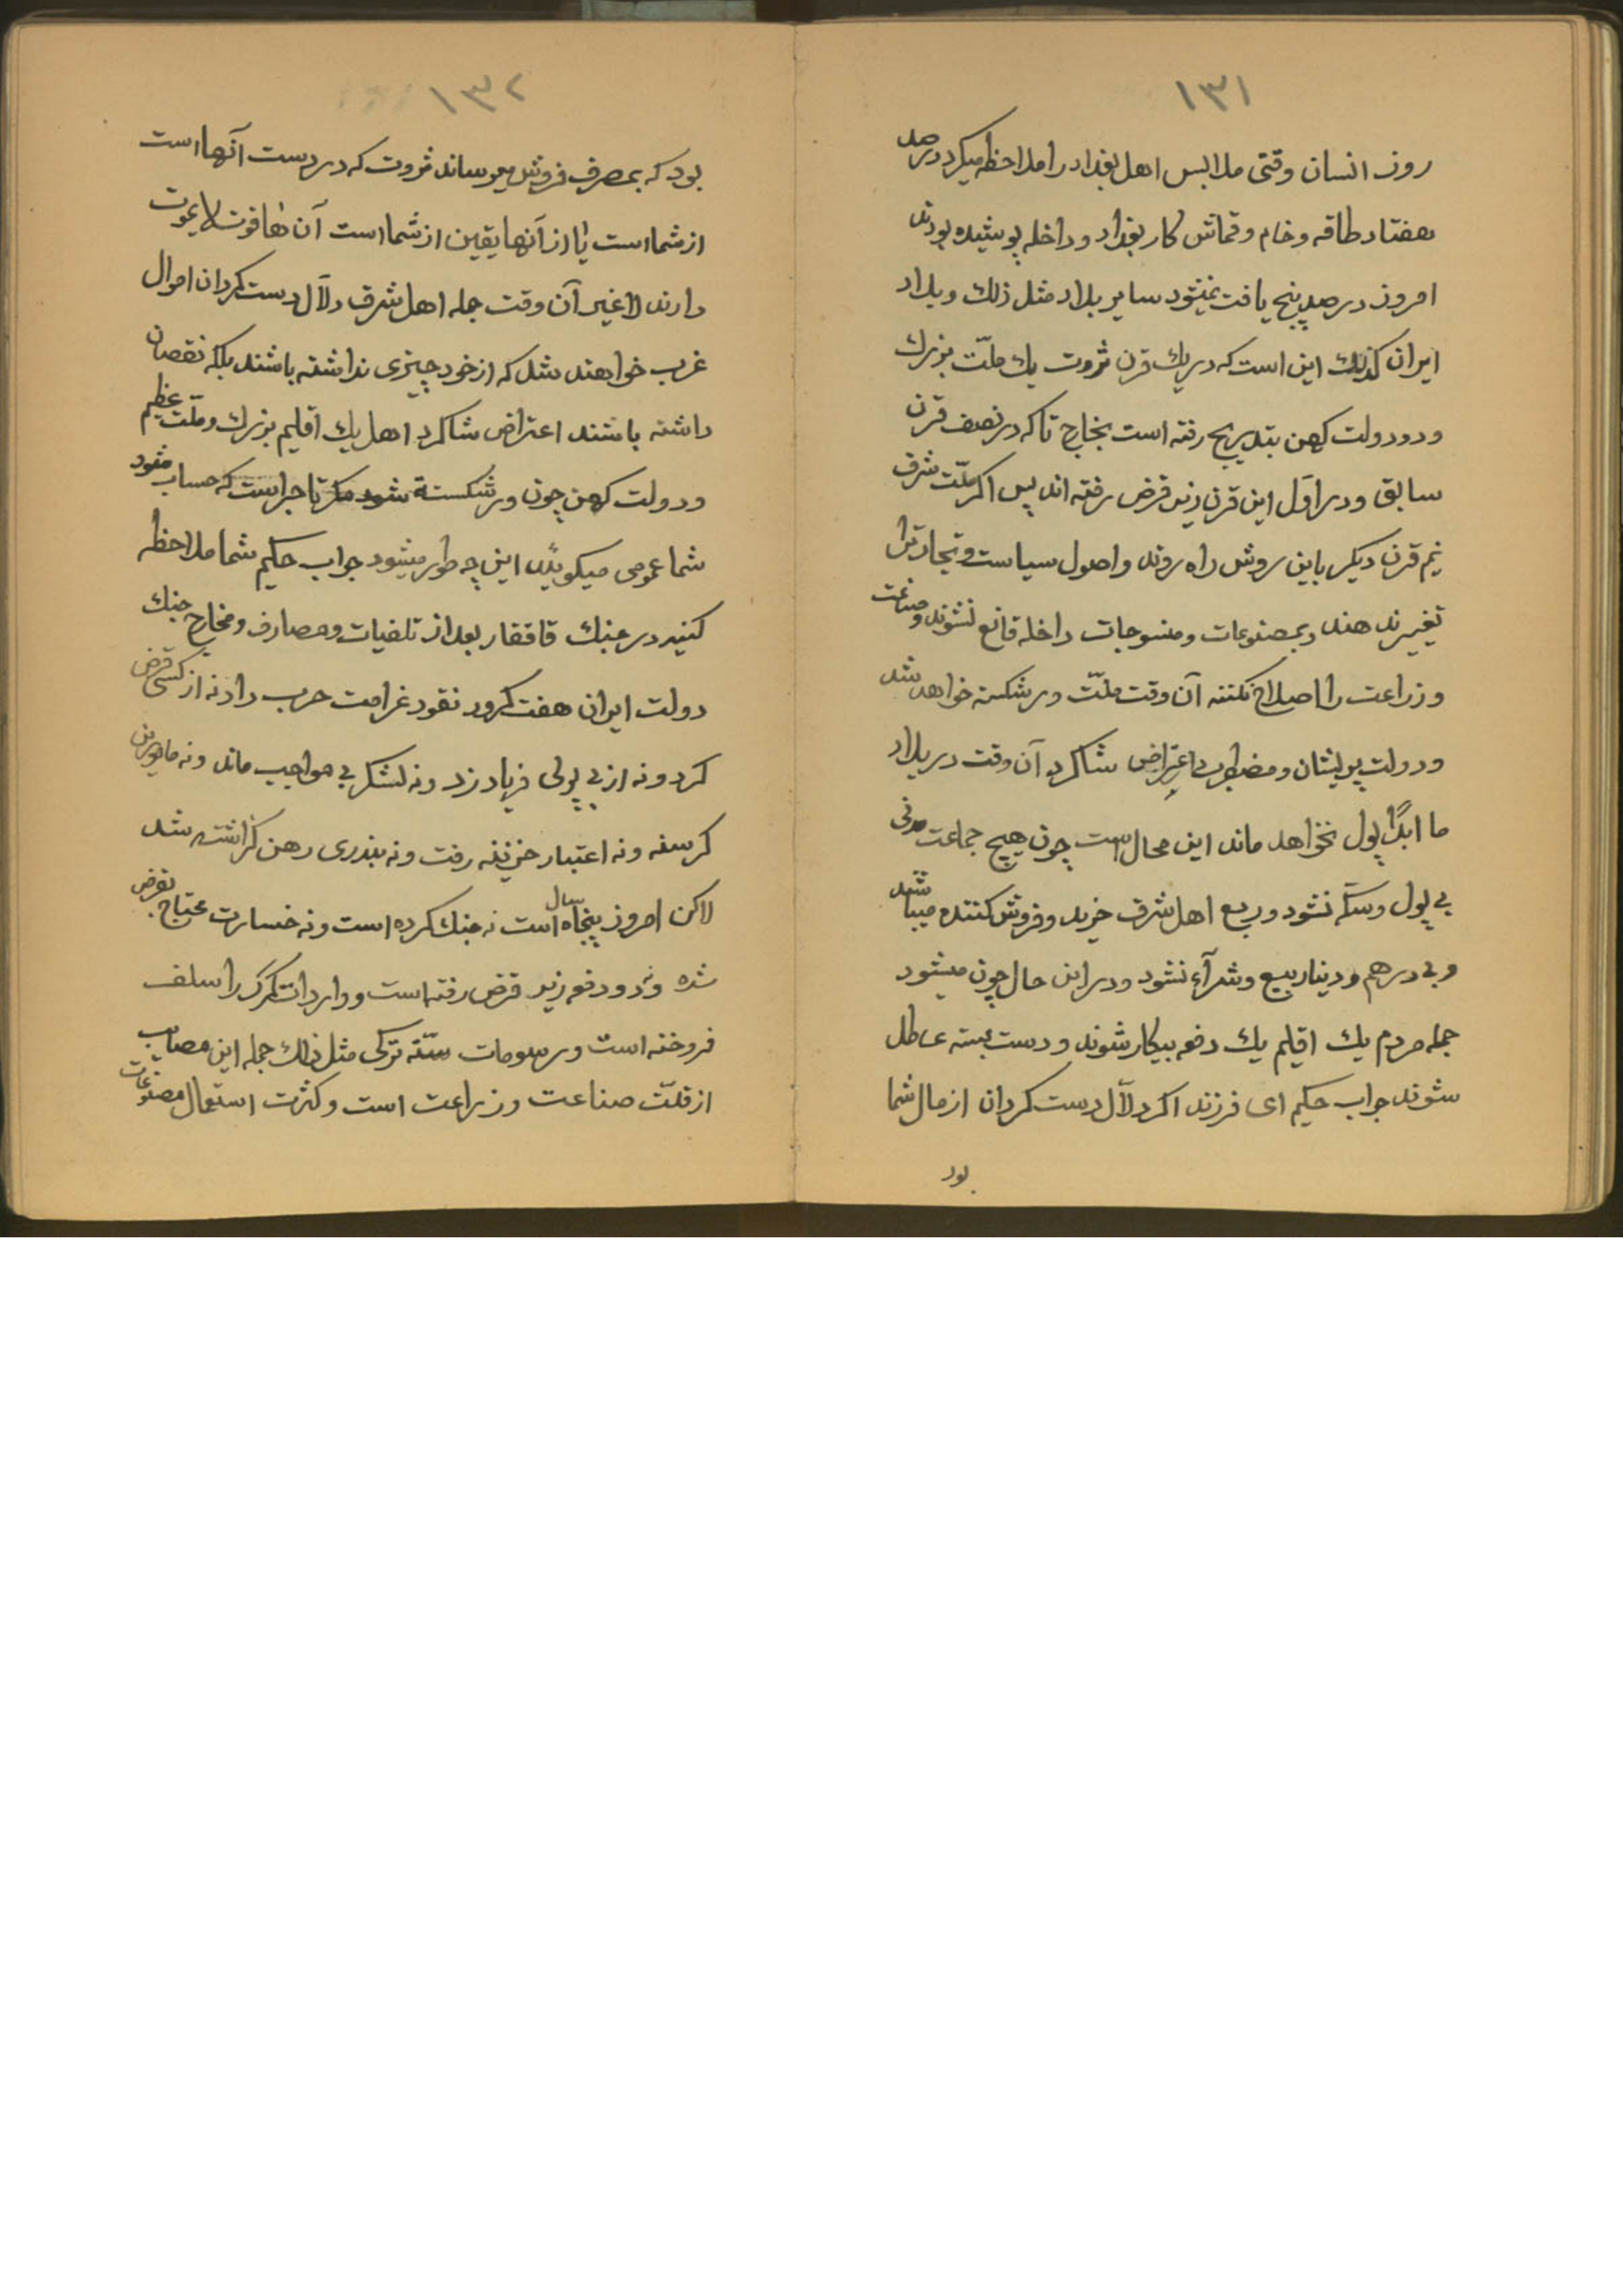 ١٣١
روز انسان وقتی ملابس اهل بغداد را ملاحظه میکرد در صد
هفتاد طاقه و خام و قماش کار بغداد و داخله پوشیده بودند
امروز در صد پنج یافت نمیشود سایر بلاد مثل ذلك و بلاد
ایران کذلك این است که در یك قرن ثروت یك ملّت بزرك
و دو دولت کهن بتدریج رفته است بخارج تا که در نصف قرن
سابق و در اوّل این قرن زیر قرض رفته اند پس اکر ملّت شرق
نیم قرن دیکر باین روش راه روند و اصول سیاست و تجارت را
تغییر ندهند و بمصنوعات و منسوجات داخله قانع نشوند و صناعت
و زراعت را اصلاح نکنند آن وقت ملّت ورشکسته خواهد شد
و دولت پریشان و مضطرب اعتراض شاکرد آن وقت در بلاد
ما ابدًا پول نخواهد ماند این محال است چون هیچ جماعت مدنی
بی پول و سکّه نشود و ربع اهل شرق خرید و فروش کننده میباشد
و بی درهم و دینار بیع و شرآء نشود و در این حال چون میشود
جمله مردم یك اقلیم یك دفعه بیکار شوند و دست بسته عاطل
شوند جواب حکیم ای فرزند اکر دلّال دست کردان از مال شما
بود
١٣٢
بود که بمصرف فروش میرساند ثروت که در دست آنها است
از شما است یا از آنها یقین از شما است آن ها قوت لا یموت
دارند لا غیر آن وقت جمله اهل شرق دلّال دست کردان اموال
غرب خواهند شد که از خود چیزی نداشته باشند بلکه نقصان
داشته باشند اعتراض شاکرد اهل یك اقلیم بزرك و ملّت عظیم
و دولت کهن چون ورشکسته شود مکر تاجر است که حساب میشود
شما عمومی میکوئید این چه طور میشود جواب حکیم شما ملاحظه
کنید در جنك قافقار بعد از تلفیات و مصارف و مخارج جنك
دولت ایران هفت کرور نقود غرامت حرب داد نه از کسی قرض
کرد و نه از بی پولی فریاد زد و نه لشکر بی مواجب ماند و نه مامورین
کرسنه و نه اعتبار خزینه رفت و نه بندری رهن کذاشته شد
لاکن امروز پنجاه سال است نه جنك کرده است و نه خسارت محتاج بقرض
شده و نه دو دفعه زیر قرض رفته است و واردات کمرک را سلف
فروخته است و رسومات ستّه ترکی مثل ذلك جمله این مصایب
از قلّت صناعت و زراعت است و کثرت استعمال مصنوعات